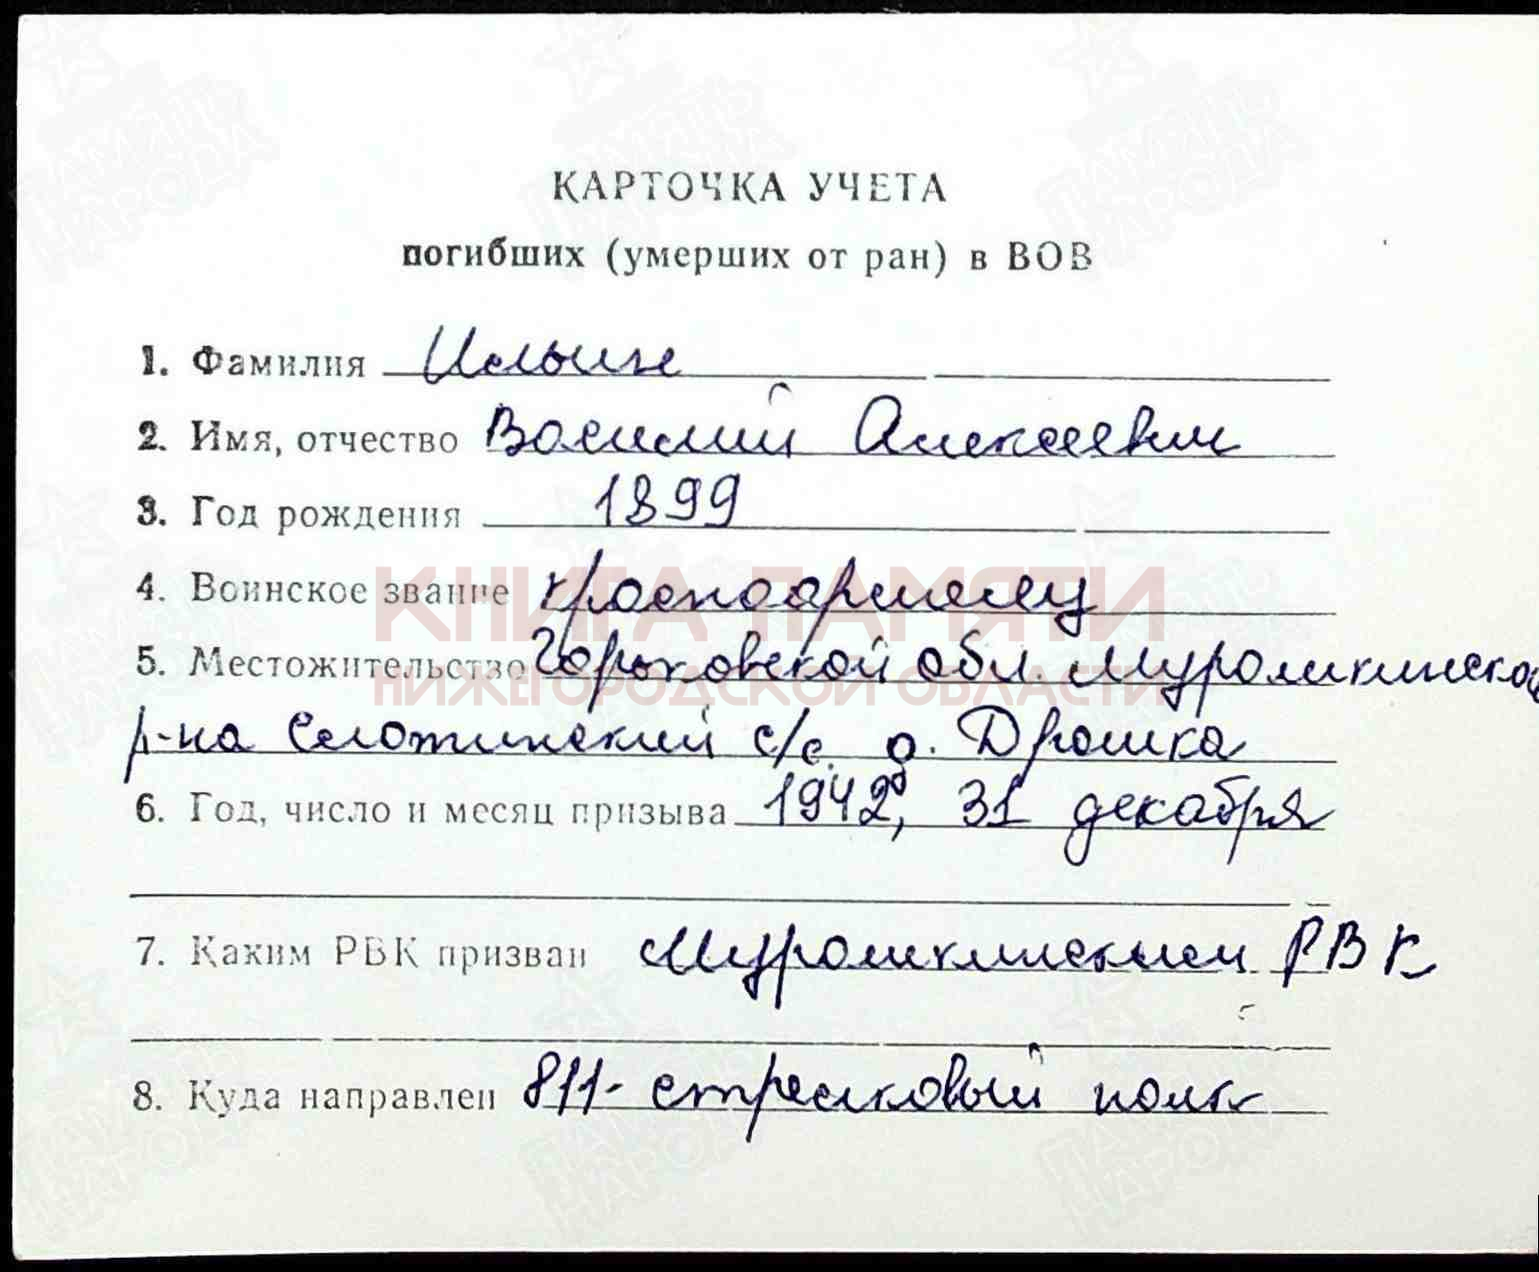 КАРТОЧКА УЧЕТА
погибших (умерших от ран) в ВОВ
1. Фамилия Ильин
2. Имя, отчество Василий Алексеевич
3. Год рождения 1899
4. Воинское звание красноармеец
КНИГА ПАМЯТИ
5. Местожительство Горьковской обл. Муромкинско
НИЖЕГОРОДСКОЙ ОБЛАСТИ
р-на Селотинский с/с. д. Дрошка
6. Год, число и месяц призыва 1942, 31 декабря
7. Каким РВК призван Муромкинским РВК
8. Куда направлен 811- стрелковый полк
ПАМЯТЬ НАРОДА